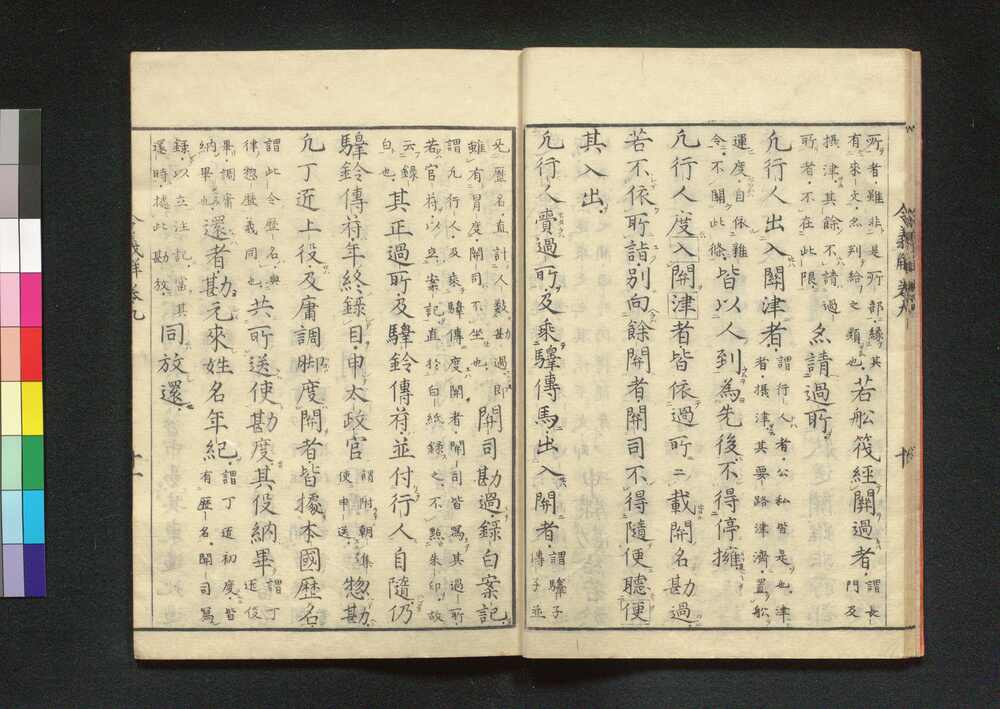 令義解 巻九 十
所者雖非是所部縁其
有來文亦判給之類也
若船筏經關過者
謂長
門及
攝津其餘不請過
所者不在此限
亦請過所
凡行人出入關津者
謂行人者公私皆是也津
者攝津其要路津濟置船
運度自依雜
令不關此條
皆以人到為先後不得停擁
凡行人度入關津者皆依過所二載關名勘過
若不依所詣別向餘關者關司不得隨便聽便
其入出
凡行人賷過所及乗驛傳馬出入關者
謂驛子
傳子並
无歴名直計人數勘過即
雖有冒度關司不坐也
關司勘過錄白案記
謂凡行人及乗驛傳度關者關司皆寫其過所
若官符以立案記直於白紙錄之不點朱印故
云錄
白也
其正過所及驛鈴傳符並付行人自隨仍
驛鈴傳符年終錄目申太政官
謂附朝集
使申送
惣勘
凡丁匠上役及庸調脚度關者皆據本國歴名
謂此令歴名與
律惣歴義同也
共所送使勘度其役納畢
謂丁
匠役
畢調庸
納畢也
還者勘元來姓名年紀
謂丁匠初度皆
有歴名關司寫
錄以立注記當其
還時據此勘放
同放還
令義解巻九 十一